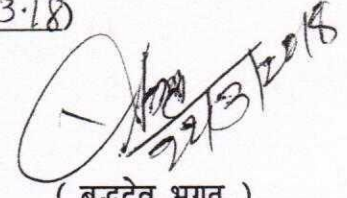 3.18)
22/3/2018
( बुद्धदेव भगत )